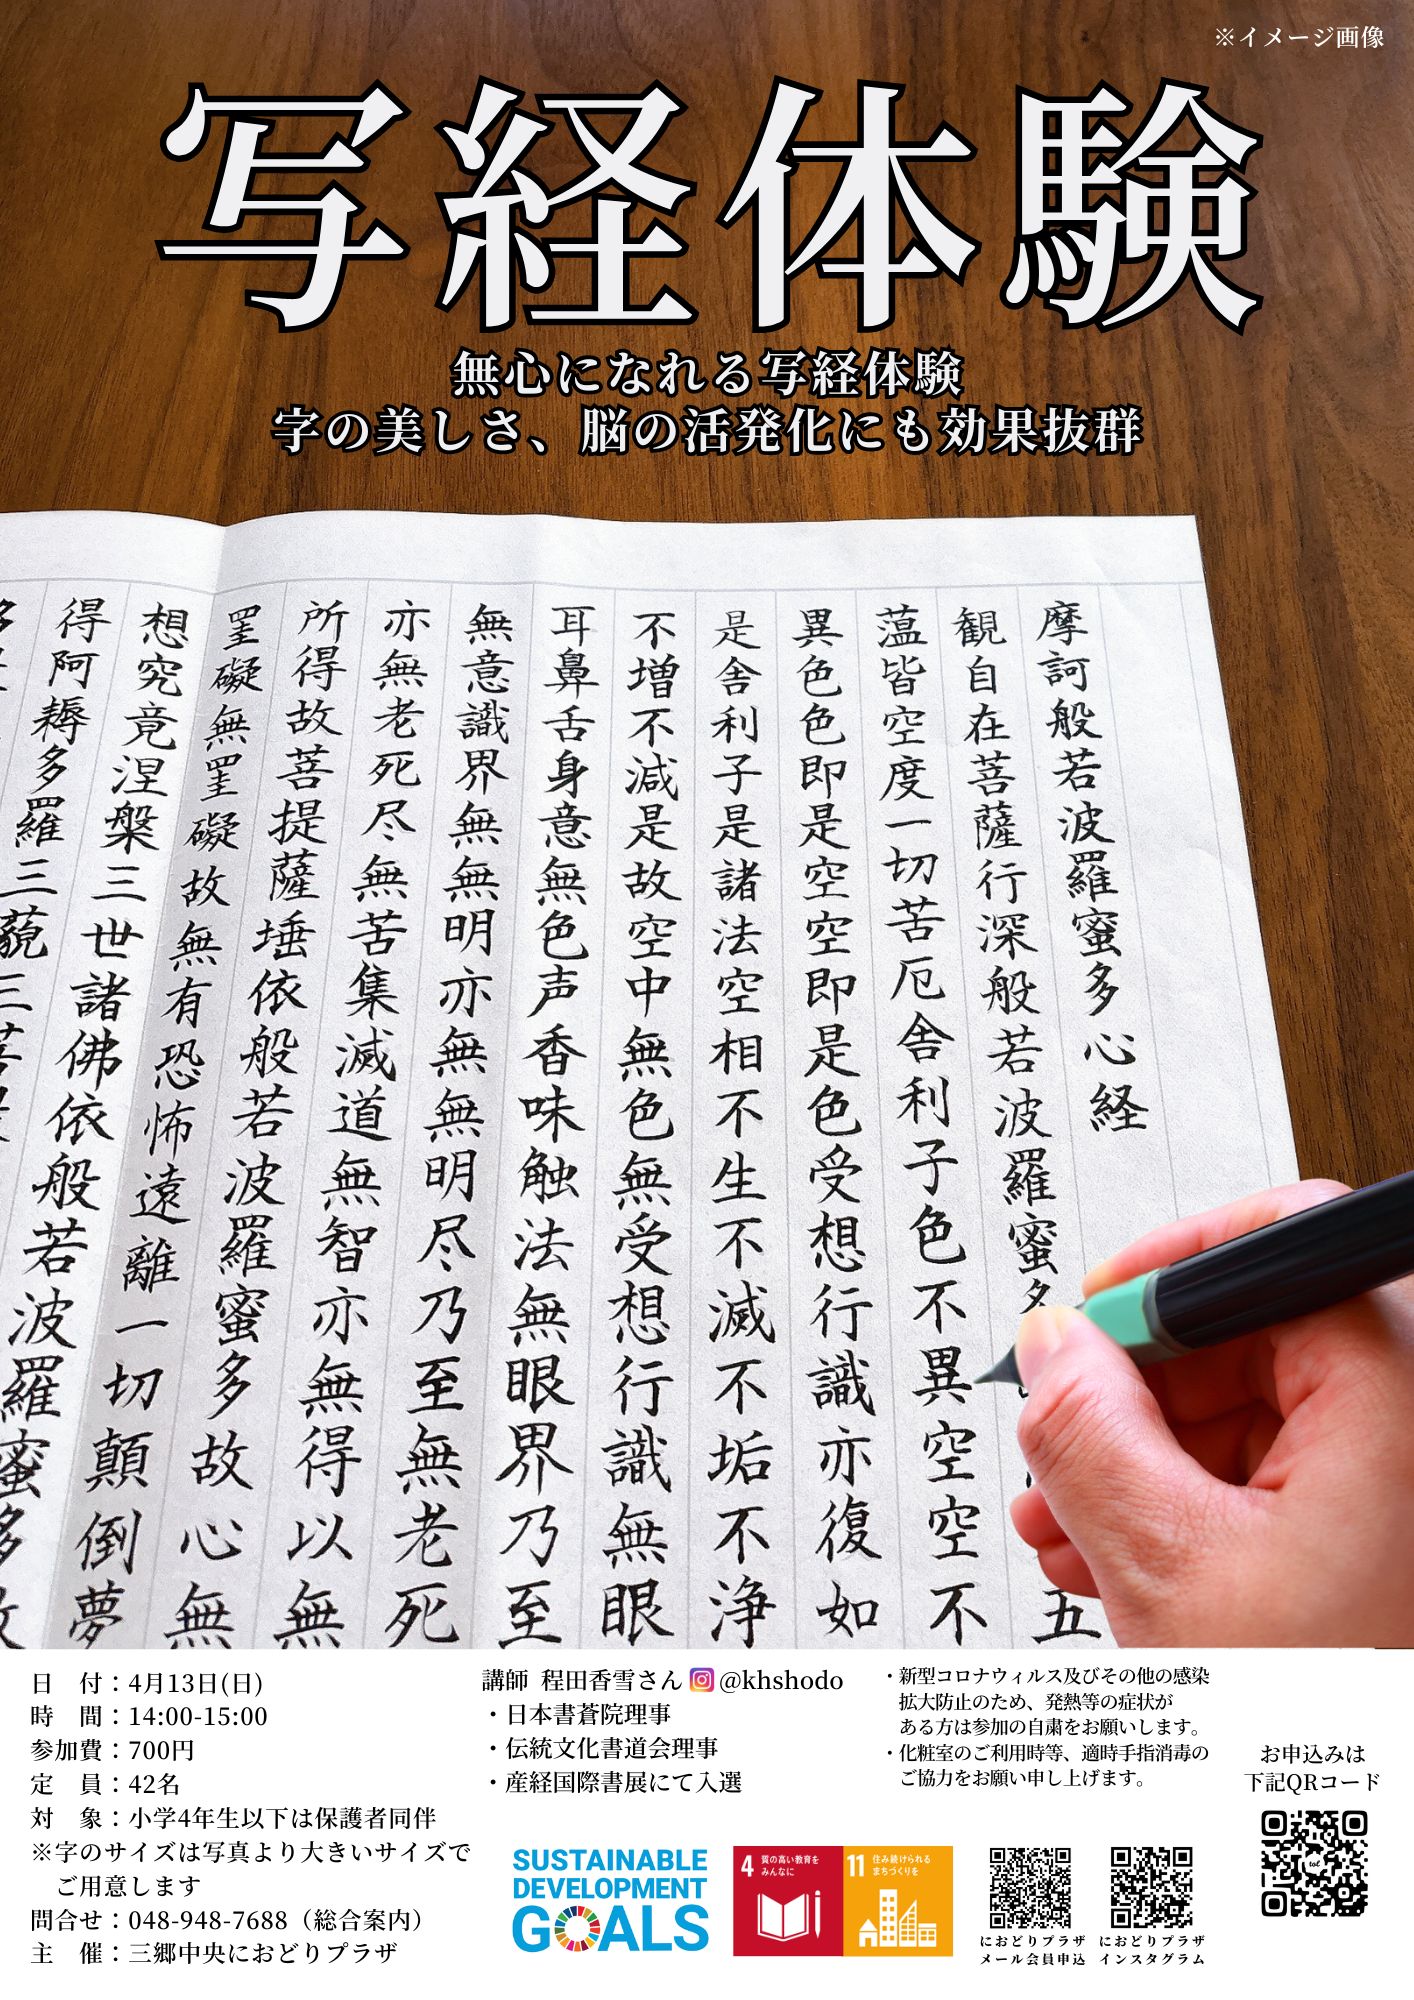 ※イメージ画像
写経体験
無心になれる写経体験
字の美しさ、脳の活発化にも効果抜群
摩訶般若波羅蜜多心経
観自在菩薩行深般若波羅蜜多 五
薀皆空度一切苦厄舎利子色不異空空不
異色色即是空空即是色受想行識亦復如
是舎利子是諸法空相不生不滅不垢不浄
不増不減是故空中無色無受想行識無眼
耳鼻舌身意無色声香味触法無眼界乃至
無意識界無無明亦無無明尽乃至無老死
亦無老死尽無苦集滅道無智亦無得以無
所得故菩提薩埵依般若波羅蜜多故心無
罣礙無罣礙故無有恐怖遠離一切顛倒夢
想究竟涅槃三世諸佛依般若波羅蜜多故
得阿耨多羅三藐三菩
日　付：4月13日(日)
時　間：14:00-15:00
参加費：700円
定　員：42名
対　象：小学4年生以下は保護者同伴
※字のサイズは写真より大きいサイズで
ご用意します
問合せ：048-948-7688（総合案内）
主　催：三郷中央におどりプラザ
講師 程田香雪さん @khshodo
・日本書蒼院理事
・伝統文化書道会理事
・産経国際書展にて入選
・新型コロナウィルス及びその他の感染
拡大防止のため、発熱等の症状が
ある方は参加の自粛をお願いします。
・化粧室のご利用時等、適時手指消毒の
ご協力をお願い申し上げます。
お申込みは
下記QRコード
SUSTAINABLE
DEVELOPMENT
GOALS
4 質の高い教育を
みんなに
11 住み続けられる
まちづくりを
におどりプラザ
メール会員申込
におどりプラザ
インスタグラム